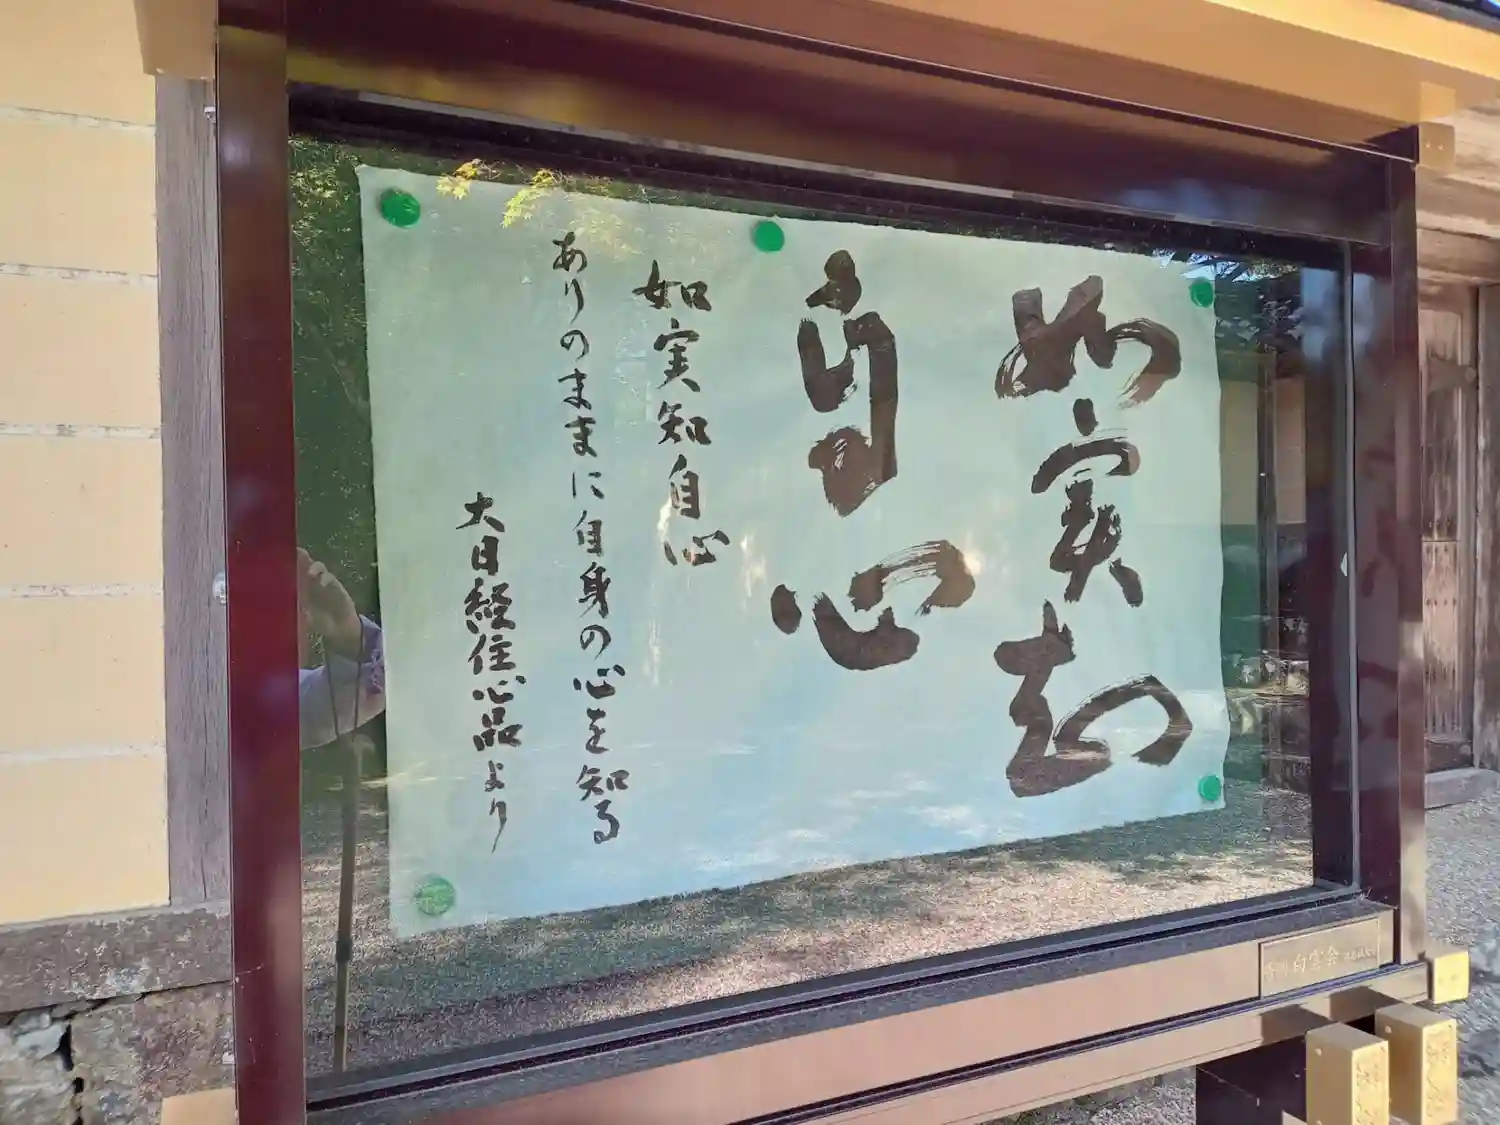 如實知
自心
如実知自心
ありのままに自身の心を知る
大日経住心品より